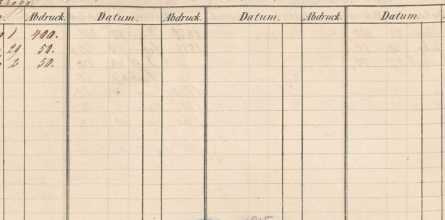 Abdruck. Datum. Abdruck. Datum. Abdruck. Datum.
1 400.
29 50.
2 50.